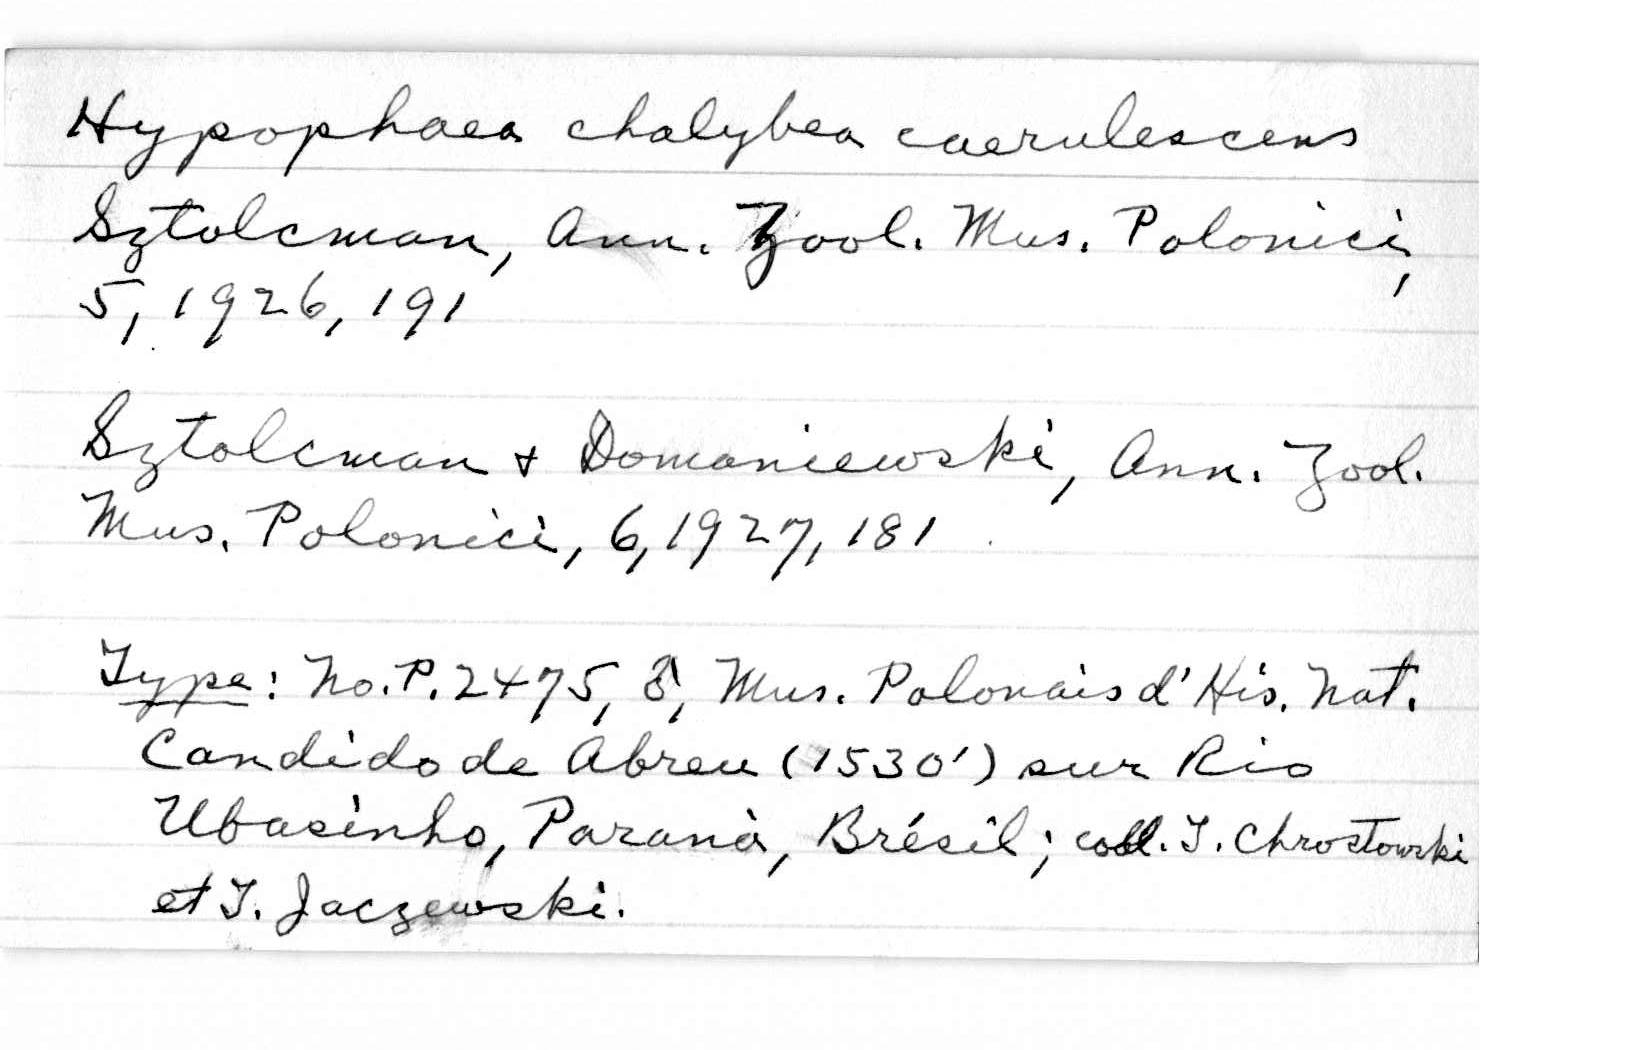 Hypophaea chalybea caerulescens
Sztolcman, Ann. Zool. Mus. Polonici,
5, 1926, 191
Sztolcman & Domaniewski, Ann. Zool.
Mus. Polonici, 6, 1927, 181
Type: No. P. 2475, ♂, Mus. Polonais d'His. Nat.
Candido de Abreu (1530') sur Rio
Ubasinho, Paranà, Brésil; coll. T. Chrostowski
et T. Jaczewski.